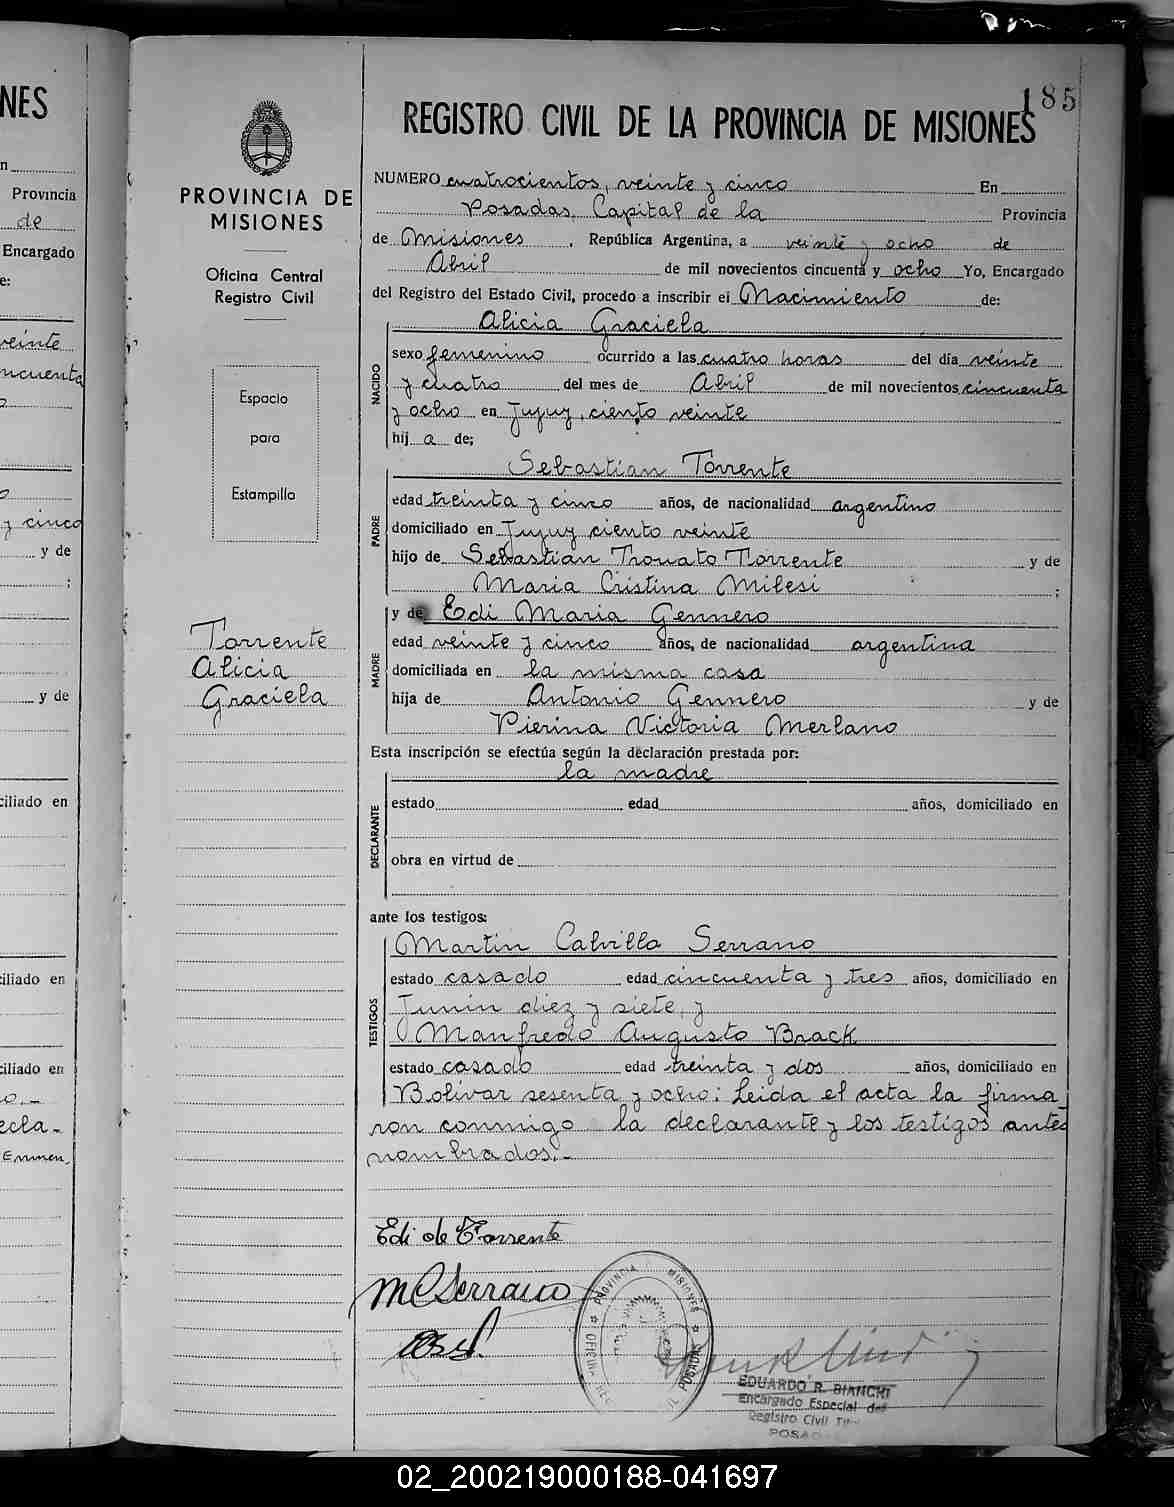 NES
n
Provincia
de
Encargado
e:
veinte
ncuenta
y cinco
y de
;
y de
ciliado en
ciliado en
ciliado en
o.-
ecla-
185
REGISTRO CIVIL DE LA PROVINCIA DE MISIONES
PROVINCIA DE
MISIONES
Oficina Central
Registro Civil
Espacio
para
Estampilla
Torrente
Alicia
Graciela
NUMERO cuatrocientos, veinte y cinco En
Posadas, Capital de la Provincia
de Misiones, República Argentina, a veinte y ocho de
Abril de mil novecientos cincuenta y ocho Yo, Encargado
del Registro del Estado Civil, procedo a inscribir el Nacimiento de:
Alicia Graciela
NACIDO
sexo femenino ocurrido a las cuatro horas del día veinte
y cuatro del mes de Abril de mil novecientos cincuenta
y ocho en Jujuy, ciento veinte
hij a de;
Sebastian Torrente
PADRE
edad treinta y cinco años, de nacionalidad argentino
domiciliado en Jujuy ciento veinte
hijo de Sebastian Trovato Torrente y de
Maria Cristina Milesi ;
y de Edi Maria Gennero
MADRE
edad veinte y cinco años, de nacionalidad argentina
domiciliada en la misma casa
hija de Antonio Gennero y de
Pierina Victoria Merlano
Esta inscripción se efectúa según la declaración prestada por:
la madre
DECLARANTE
estado edad años, domiciliado en
obra en virtud de
ante los testigos:
Martin Calvillo Serrano
TESTIGOS
estado casado edad cincuenta y tres años, domiciliado en
Junin diez y siete, y
Manfredo Augusto Brack
estado casado edad treinta y dos años, domiciliado en
Bolivar sesenta y ocho: Leida el acta la firma_
ron conmigo la declarante y los testigos antes
nombrados.-
Edi de Torrente
MCSerrano
PROVINCIA MISIONES
OFICINA
POSADAS
EDUARDO R. BIANCHI
Encargado Especial del
Registro Civil
POSA
02_200219000188-041697